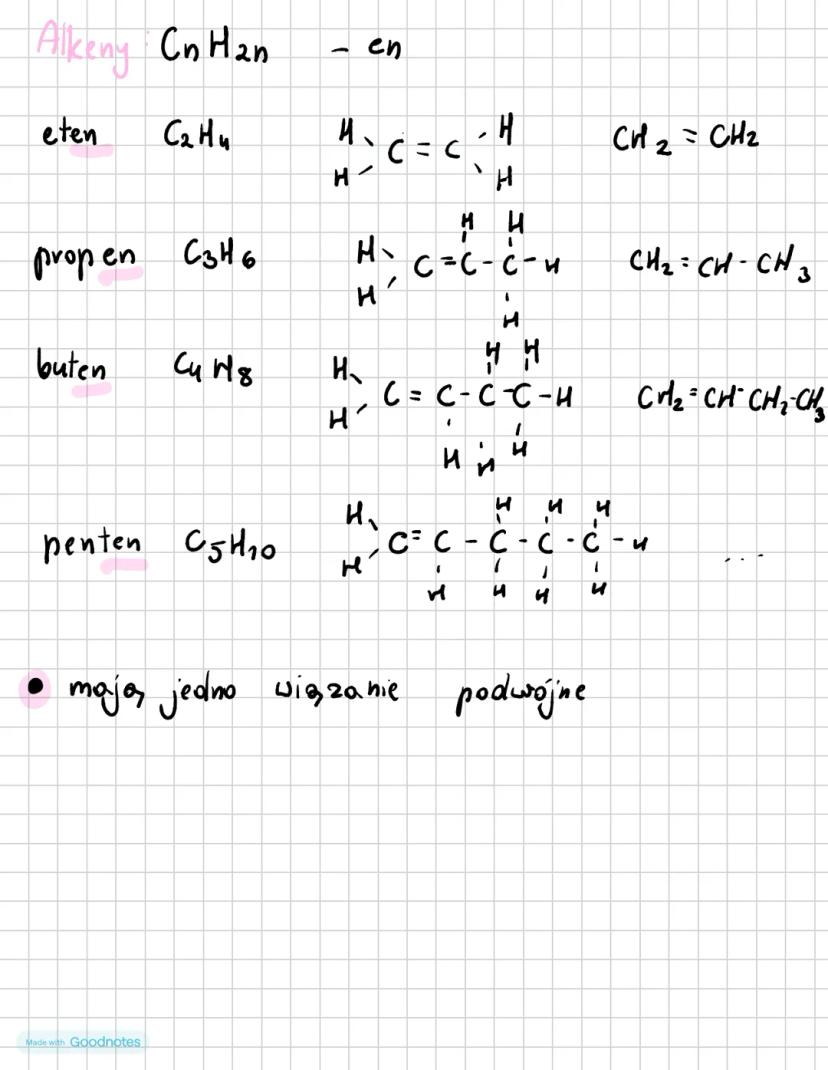 Alkeny: CnH2n - en
eten C2H4 H H C = C H H CH2 = CH2
H H
propen C3H6 H C = C - C - H CH2 = CH - CH3
H H
H H
buten C4H8 H H C = C - C - C - H CH2 = CH - CH2 - CH3
H H H
H H H
penten C5H10 H H C = C - C - C - C - H ...
H H H H
• mają jedno wiązanie podwójne
Made with Goodnotes